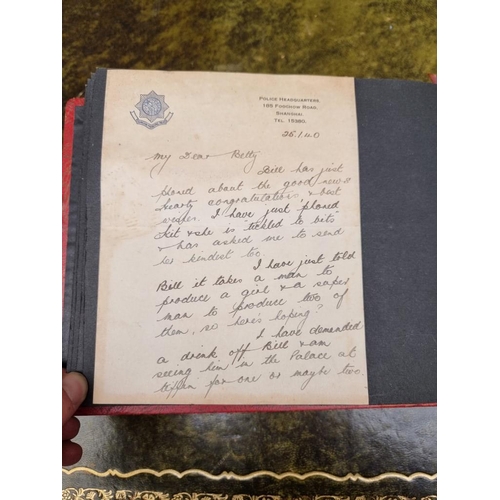 POLICE HEADQUARTERS
185 FOOCHOW ROAD.
SHANGHAI.
TEL. 15380.
25.1.40
My Dear Betty
Bill has just
phoned about the good news
hearty congratulations & best
wishes. I have just 'phoned
Kit & she is 'tickled to bits'
& has asked me to send
her kindest too.
I have just told
Bill it takes a man to
produce a girl & a
man to produce two of
them, so here's hoping?
I have demanded
a drink off Bill & am
seeing him in the Palace at
tiffin for one or maybe two.